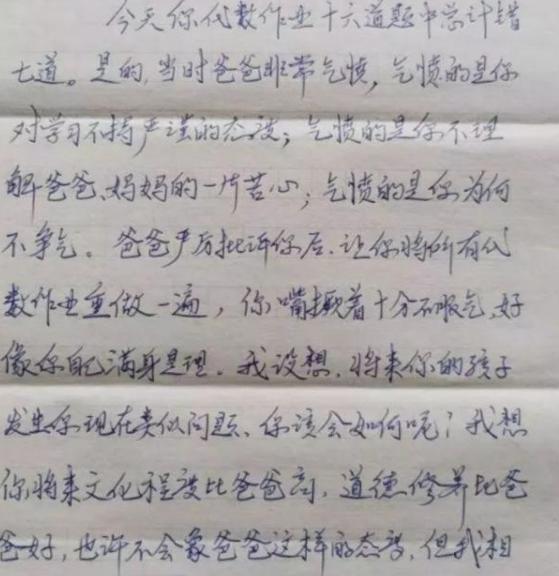 今天你代数作业十六道题中总计错
七道。是的,当时爸爸非常气愤,气愤的是你
对学习不持严谨的态度;气愤的是你不理
解爸爸、妈妈的一片苦心;气愤的是你为何
不争气。爸爸严厉批评你后,让你将所有代
数作业重做一遍,你嘴撅着十分不服气,好
像你自己满身是理。我设想,将来你的孩子
发生你现在类似问题、你该会如何呢?我想
你将来文化程度比爸爸高,道德修养比爸
爸好,也许不会象爸爸这样的态度,但我相